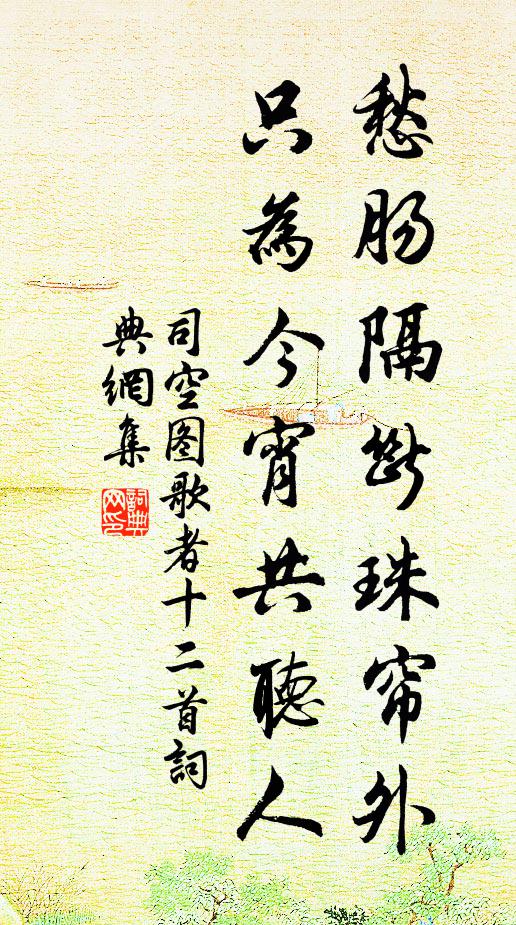 愁肠隔断珠帘外
只為今宵共聽人
司空图歌者十二首詞
典網集
詞典網印